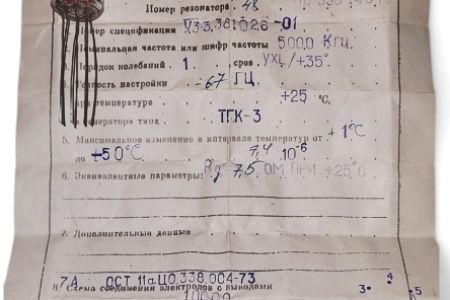 Номер резонатора 48
Номер спецификации УЗ3.381026-01
Номинальная частота или шифр частоты 500,0 Кгц.
Порядок колебаний 1. сров. УХL/+35°.
Точность настройки -67 ГЦ
при температуре +25 °С,
генератора типа ТГК-3
5. Максимальное изменение в интервале температур от + 1°С
до +50°С 7,4 10-6
6. Эквивалентные параметры: Rg 7,5 ОМ ПРИ +25°С
7. Дополнительные данные
7А ОСТ 11аЦ0.338.004-73
8. Схема соединения электродов с выводами 3• 4 •5